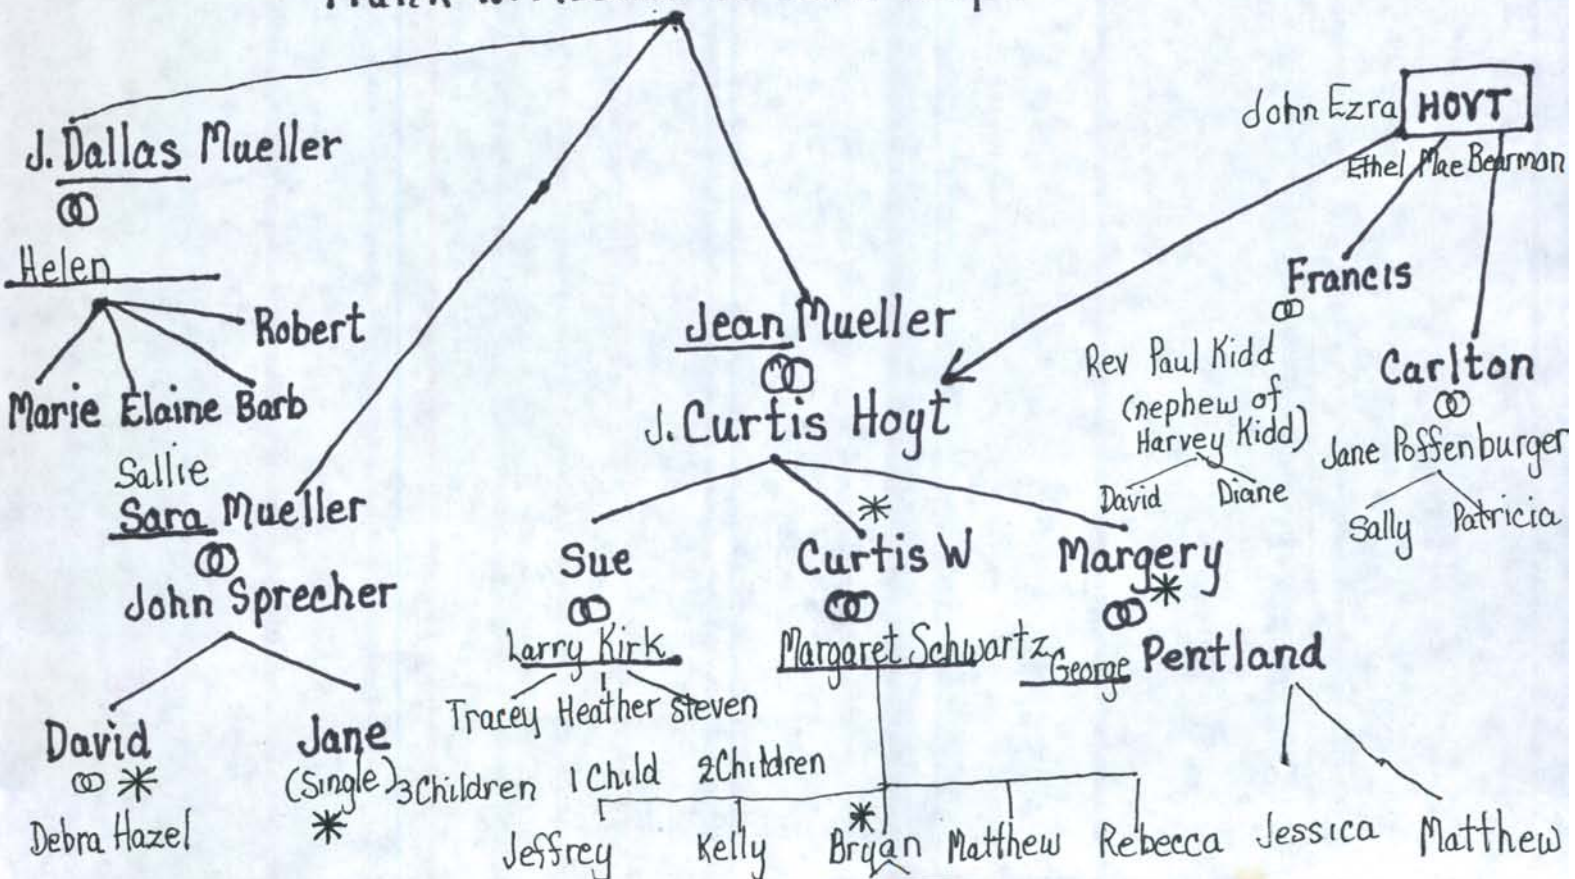 John Ezra HOYT
Ethel Mae Bearman
J. Dallas Mueller
Helen
Robert
Marie Elaine Barb
Sallie
Sara Mueller
John Sprecher
David
Debra Hazel
Jane
(Single)
Jean Mueller
J. Curtis Hoyt
Sue
Larry Kirk
Tracey Heather Steven
3 Children 1 Child 2 Children
Curtis W
Margaret Schwartz
Jeffrey Kelly Bryan Matthew Rebecca
Margery
George Pentland
Jessica Matthew
Francis
Rev Paul Kidd
(nephew of
Harvey Kidd)
David Diane
Carlton
Jane Poffenburger
Sally Patricia